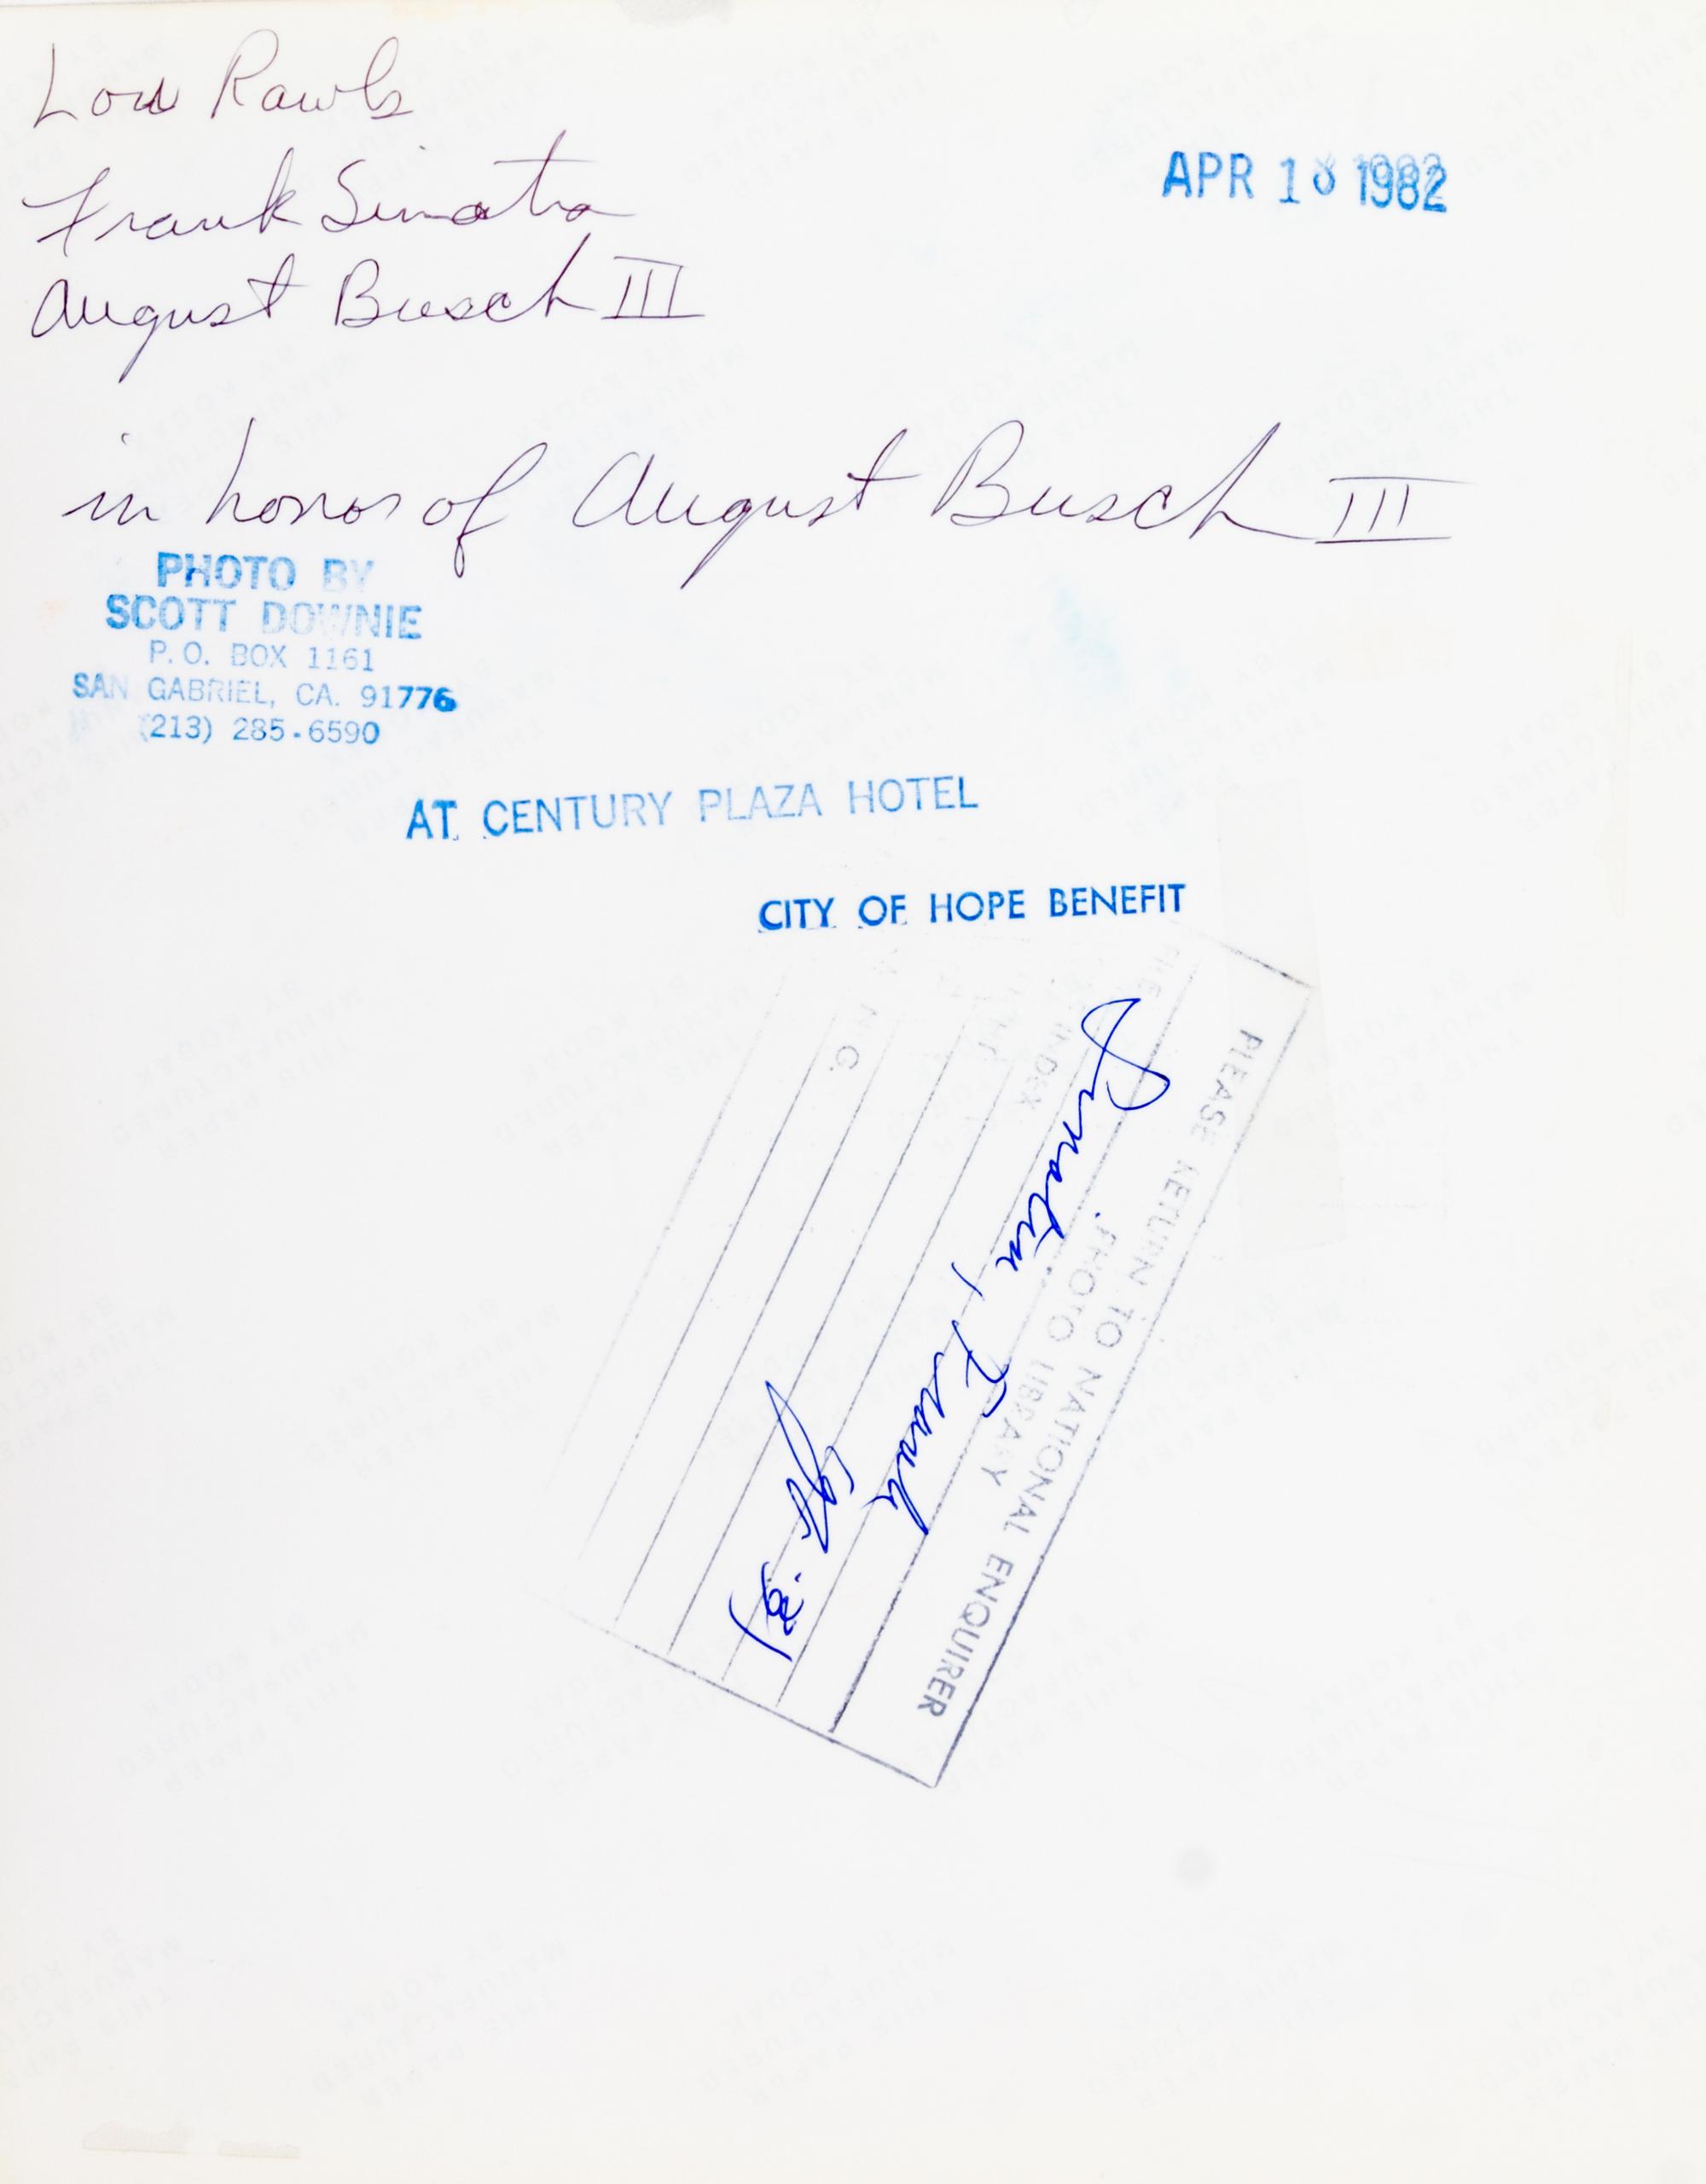 Lou Rawls
Frank Sinatra
August Busch III
APR 18 1982
in honor of August Busch III
PHOTO BY
SCOTT DOWNIE
P.O. BOX 1161
SAN GABRIEL, CA. 91776
(213) 285-6590
AT CENTURY PLAZA HOTEL
CITY OF HOPE BENEFIT
PLEASE RETURN TO NATIONAL ENQUIRER
PHOTO LIBRARY
Sinatra, Frank
INDEX
THIS PAPER
MANUFACTURED
BY KODAK